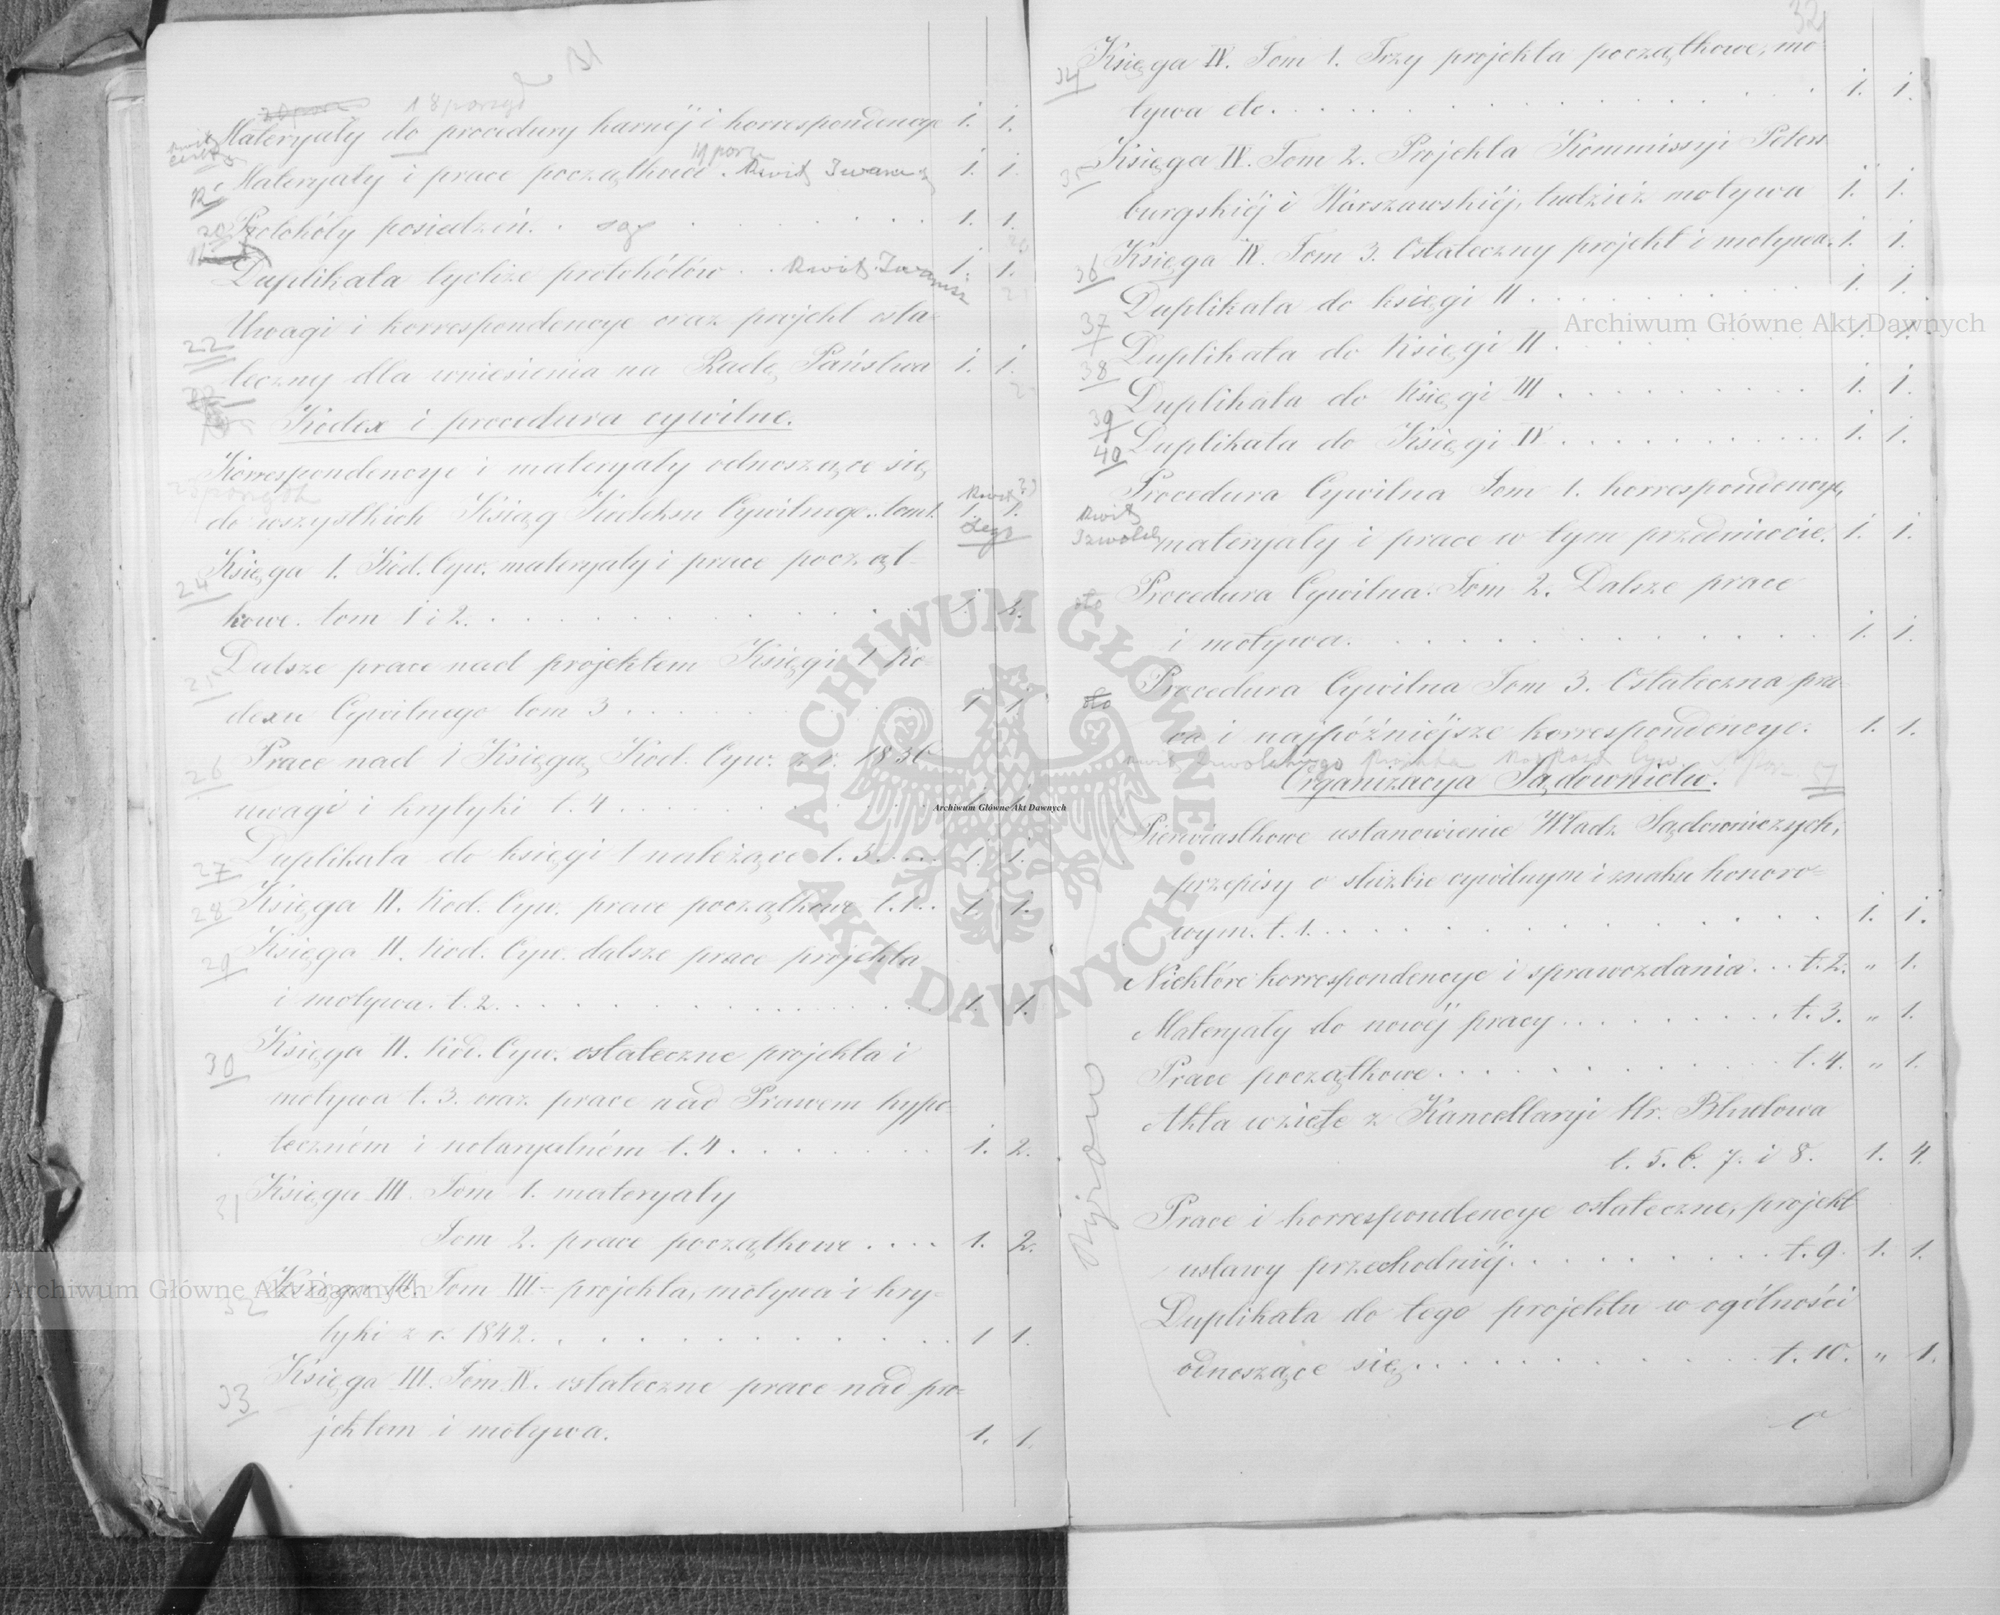 31
18 porząd
Materyały do procedury karnéj i korrespondencye 1. 1.
19 porz
Materyały i prace początkowe. Kwit 1. 1.
Protokóły posiedzeń. . 1. 1.
Duplikata tychże protokółów . . Kwit 1. 1.
Uwagi i korrespondencye oraz projekt osta-
22
teczny dla wniesienia na Radę Państwa 1. 1.
Kodex i procedura cywilne.
Korrespondencye i materyały odnoszące się
do wszystkich Ksiąg Kodeksu Cywilnego. tom 1. 1.
Księga 1. Kod. Cyw. materyały i prace począt-
24
kowe. tom 1 i 2. 1. 2.
Dalsze prace nad projektem Księgi 1 Ko-
25
dexu Cywilnego tom 3 1. 1.
Prace nad 1 Księgą Kod. Cyw. z r. 1836
26
uwagi i krytyki t. 4 1. 1.
27 Duplikata do księgi 1 należące t. 5. 1. 1.
28 Księga II. Kod. Cyw. prace początkowe t. 1. 1. 1.
29 Księga II. Kod. Cyw. dalsze prace projekta
i motywa. t. 2. 1. 1.
30 Księga II. Kod. Cyw. ostateczne projekta i
motywa t. 3. oraz prace nad Prawem hypo-
teczném i notaryalném t. 4 1. 2.
31 Księga III. Tom 1. materyały
Tom 2. prace początkowe 1. 2.
32 Księga III. Tom III - projekta, motywa i kry-
tyki z r. 1842. 1. 1.
33 Księga III. Tom IV. ostateczne prace nad pro-
jektem i motywa. 1. 1.
32
34 Księga IV. Tom 1. Trzy projekta początkowe, mo-
tywa etc. 1. 1.
35 Księga IV. Tom 2. Projekta Kommissyi Peters-
burgskiéj i Warszawskiéj, tudzież motywa 1. 1.
36 Księga IV. Tom 3. Ostateczny projekt i motywa. 1. 1.
37 Duplikata do księgi II 1. 1.
38 Duplikata do Księgi II 1. 1.
39 Duplikata do Księgi III 1. 1.
40 Duplikata do Księgi IV 1. 1.
Procedura Cywilna Tom 1. korrespondencye,
Kwit
materyały i prace w tym przedmiocie. 1. 1.
Procedura Cywilna. Tom 2. Dalsze prace
i motywa. 1. 1.
Procedura Cywilna Tom 3. Ostateczna pra-
ca i najpóźniéjsze korrespondencye. 1. 1.
Organizacya Sądownictw.
Pierwiastkowe ustanowienie Władz Sądowniczych,
przepisy o służbie cywilnym i znaku honoro-
wym. t. 1. 1. 1.
Niektóre korrespondencye i sprawozdania . . . t. 2. " 1.
Materyały do nowéj pracy t. 3. " 1.
Prace początkowe t. 4. " 1.
Akta wzięte z Kancellaryi Hr. Błudowa
t. 5. 6. 7. i 8. 1. 4.
Prace i korrespondencye ostateczne, projekt
ustawy przechodniéj t. 9. 1. 1.
Duplikata do tego projektu w ogólności
odnoszące się t. 10. " 1.
Archiwum Główne Akt Dawnych
Archiwum Główne Akt Dawnych
Archiwum Główne Akt Dawnych
· ARCHIWUM GŁÓWNE · AKT DAWNYCH ·